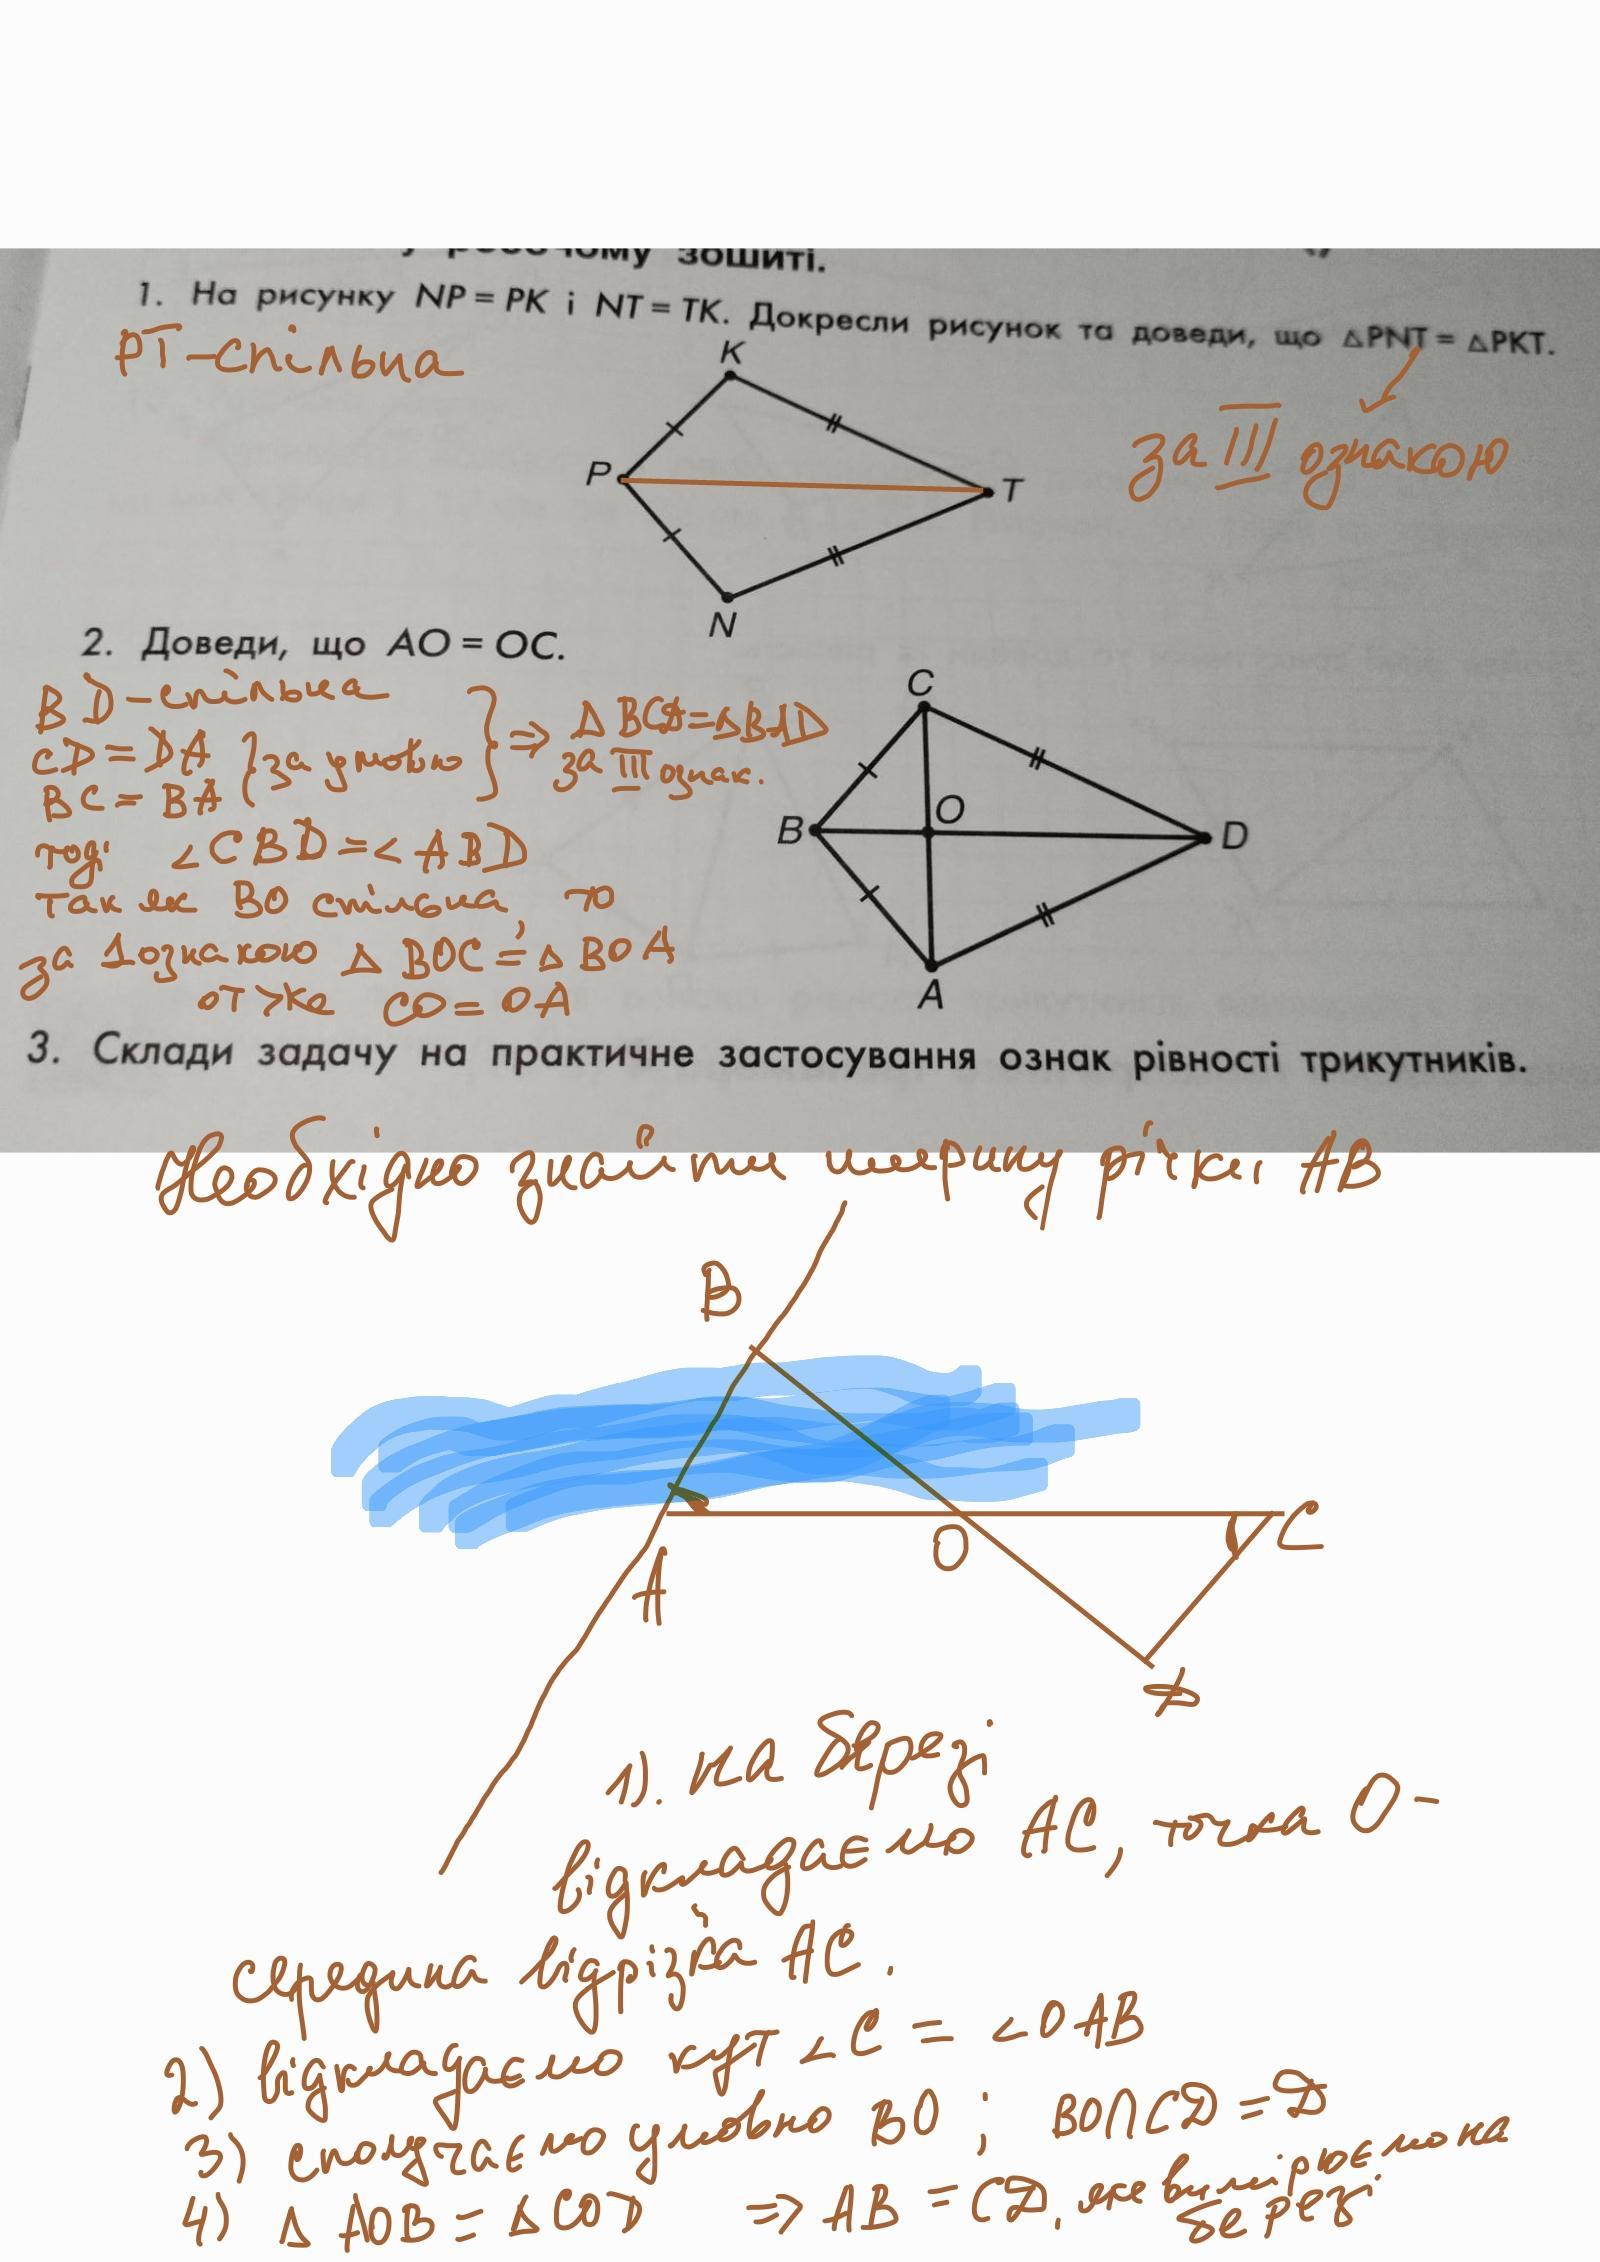 у робочому зошиті.
1. На рисунку NP = PK і NT = TK. Докресли рисунок та доведи, що △PNT = △PKT.
PT - спільна
за III ознакою
K
P
T
N
2. Доведи, що AO = OC.
BD - спільна
CD = DA } за умовою } ⇒ △ BCD = △ BAD
BC = BA
за III ознак.
тоді ∠CBD = ∠ABD
так як BO спільна, то
за 1 ознакою △ BOC = △ BOA
отже CO = OA
C
B
O
D
A
3. Склади задачу на практичне застосування ознак рівності трикутників.
Необхідно знайти ширину річки AB
B
A
O
C
D
1). на березі
відкладаємо AC, точка O -
середина відрізка AC.
2) відкладаємо кут ∠C = ∠OAB
3) сполучаємо умовно BO ; BO∩CD = D
4) △ AOB = △ COD ⇒ AB = CD, яке вимірюємо на
березі